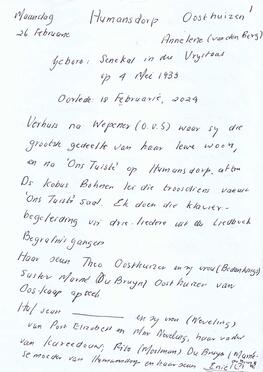 1
Maandag Humansdorp Oosthuizen
26 Februarie Annelene (van den Berg)
Gebore: Senekal in die Vrystaat
op 4 Mei 1935
Oorlede: 18 Februarie, 2024
Verhuis na Wepener (O.V.S) waar sy die
grootste gedeelte van haar lewe woon,
en na 'Ons Tuiste' op Humansdorp,
Ds Kobus Bohnen lei die troosdiens vanuit
'Ons Tuiste' saal. Ek doen die klavier-
begeleiding vir drie-liedere uit die Liedboek
Begrafnisgangers
Haar seun Theo Oosthuizen en sy vrou
Suster (Du Bruyn) Oosthuizen van
Oos-kaap apteek
Hof seun en sy vrou
van Port Elizabeth en Mnr haar vader
van Kareedouw, Rita (Mostman) Du Bruyn
se moeder van Humansdorp en haar seun